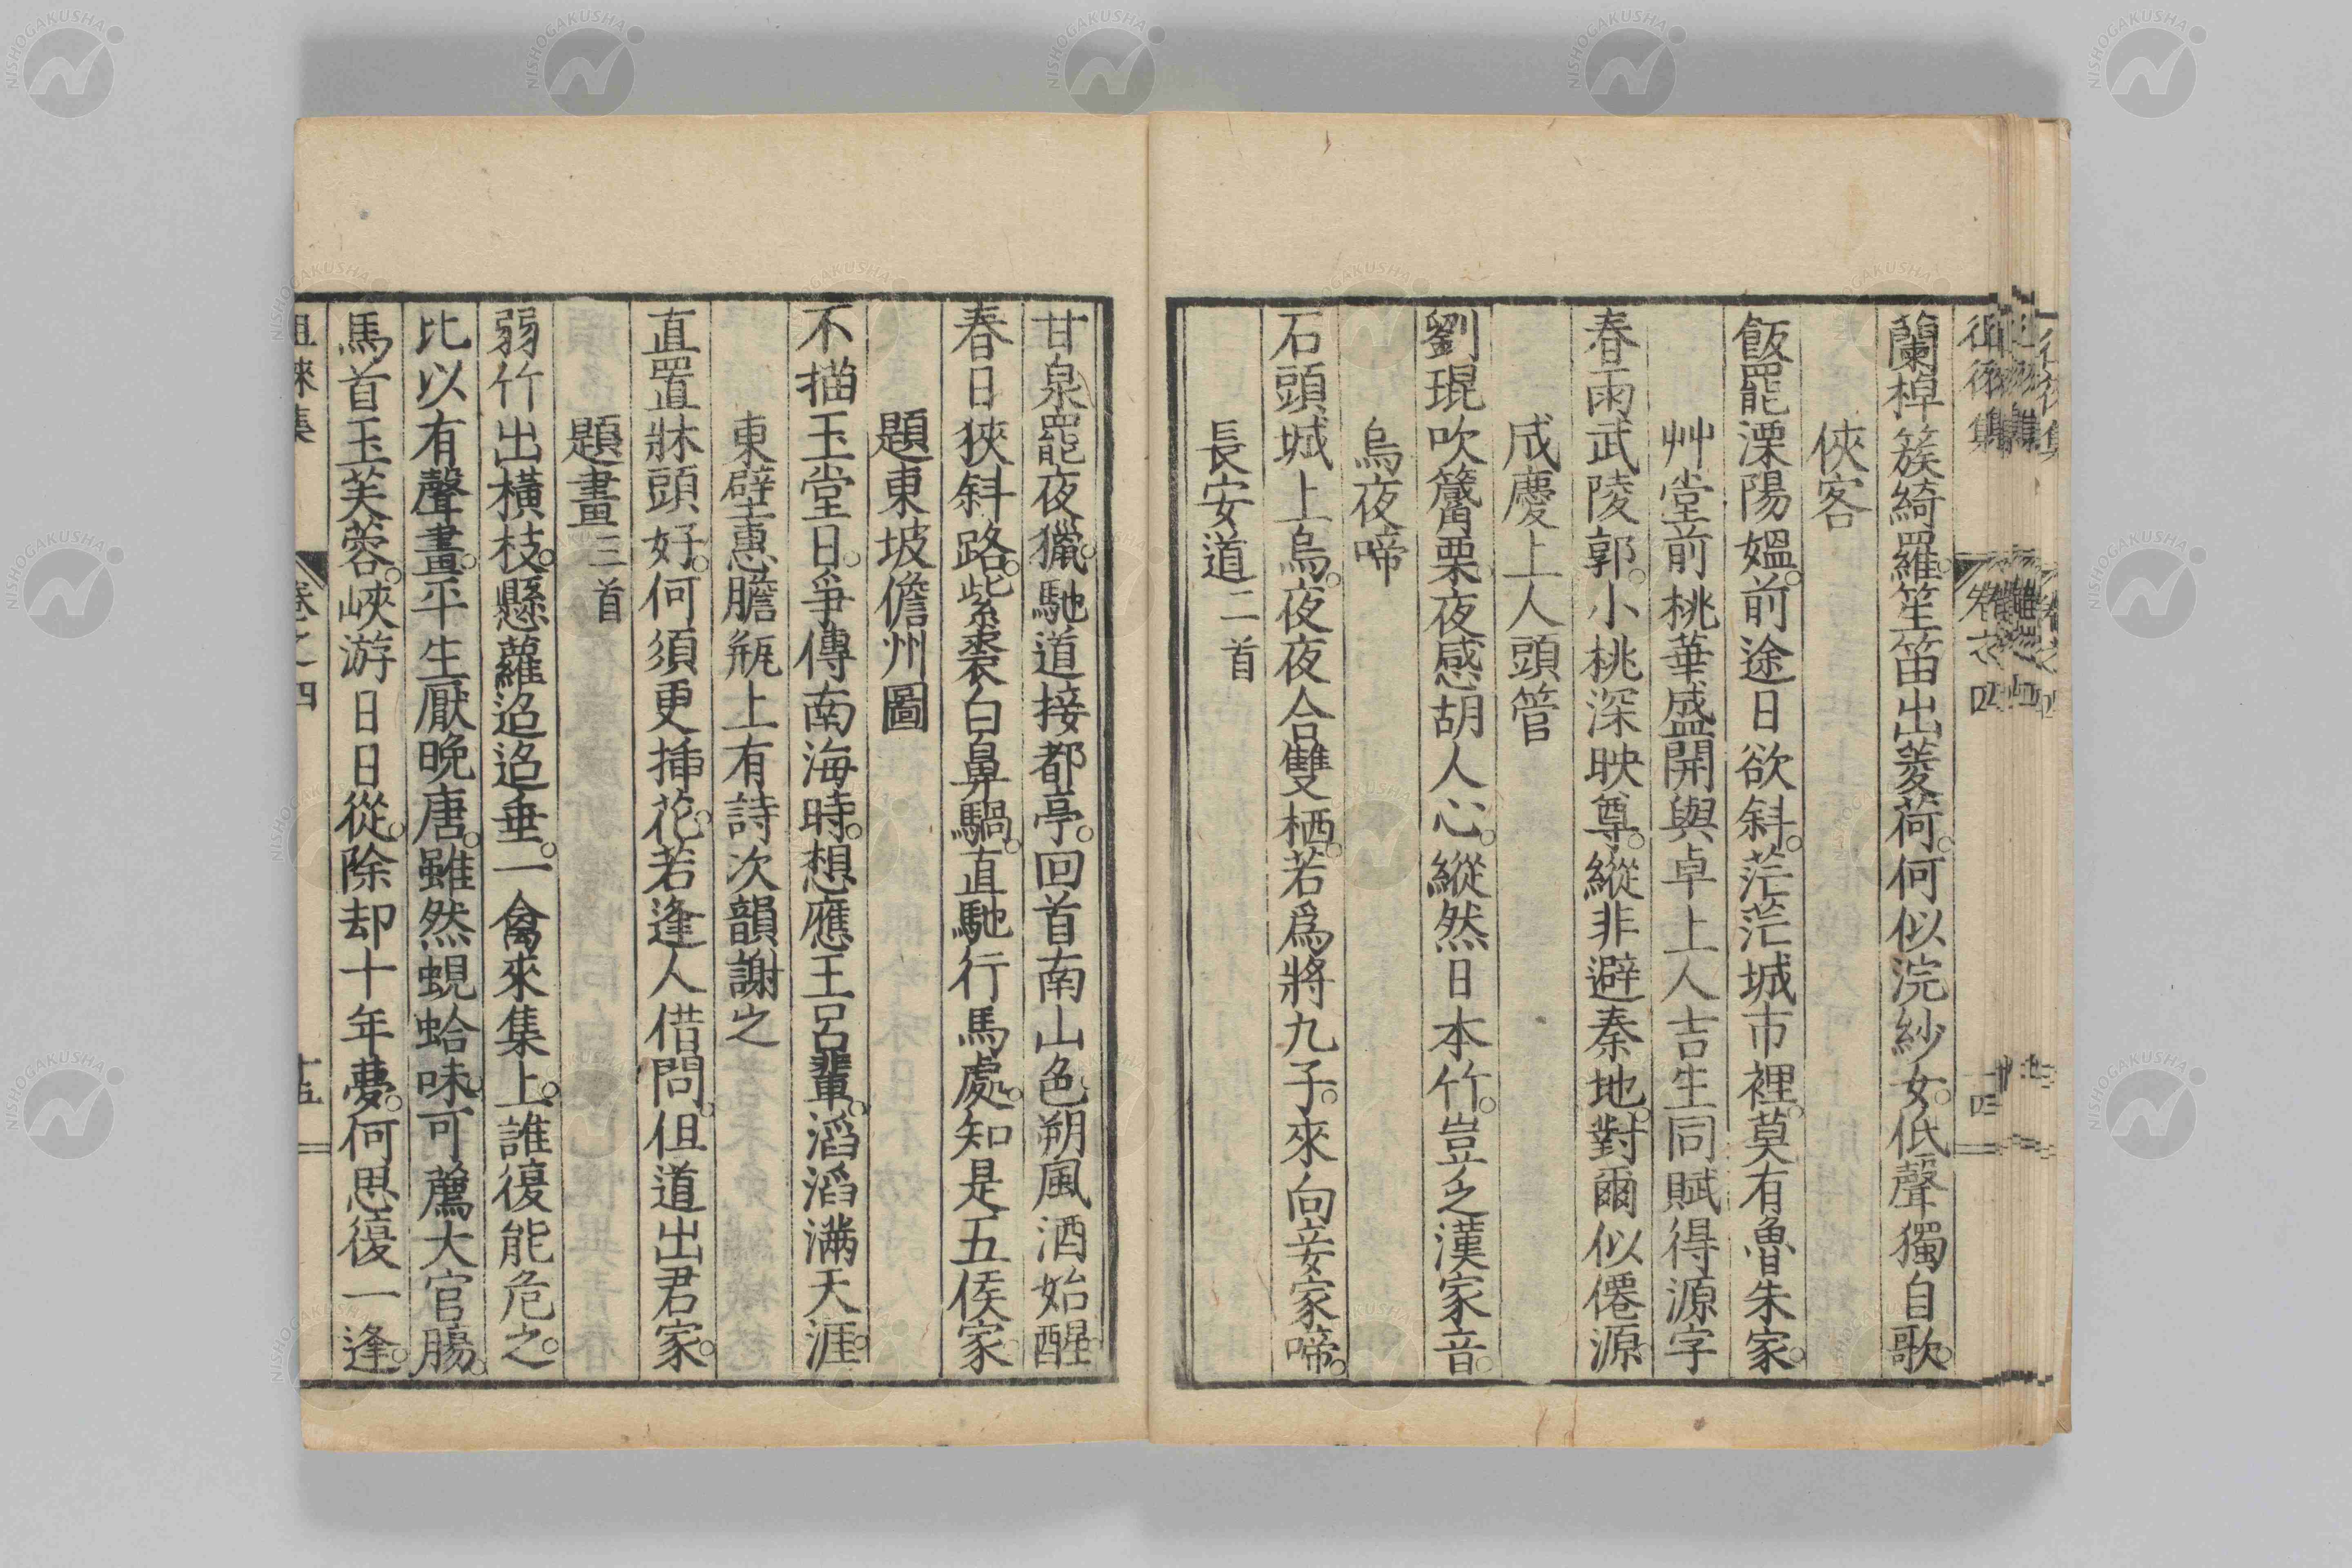 蘭棹簇綺羅。笙笛出菱荷。何似浣紗女。低聲獨自歌。
俠客
飯罷溧陽媼。前途日欲斜。茫茫城市裡。莫有魯朱家。
艸堂前桃華盛開與卓上人吉生同賦得源字
春雨武陵郭。小桃深映尊。縱非避秦地。對爾似僊源。
成慶上人頭管
劉琨吹篳栗夜感胡人心。縱然日本竹。豈乏漢家音。
烏夜啼
石頭城上烏。夜夜合雙栖。若爲將九子。來向妾家啼。
長安道二首
甘泉罷夜獵。馳道接都亭。回首南山色朔風酒始醒。
春日狹斜路。紫裘白鼻騧。直馳行馬處。知是五侯家
題東坡儋州圖
不描玉堂日。爭傳南海時。想應王呂輩。滔滔滿天涯。
東壁惠膽瓶上有詩次韻謝之
直置牀頭好。何須更插花。若逢人借問。但道出君家。
題畫三首
弱竹出橫枝。懸蘿迢迢垂。一禽來集上。誰復能危之。
比以有聲畫。平生厭晚唐。雖然蜆蛤味。可薦大官膓。
馬首玉芙蓉。峽游日日從。除却十年夢。何思復一逢。
徂徠集 卷之四 十五
NISHOGAKUSHA